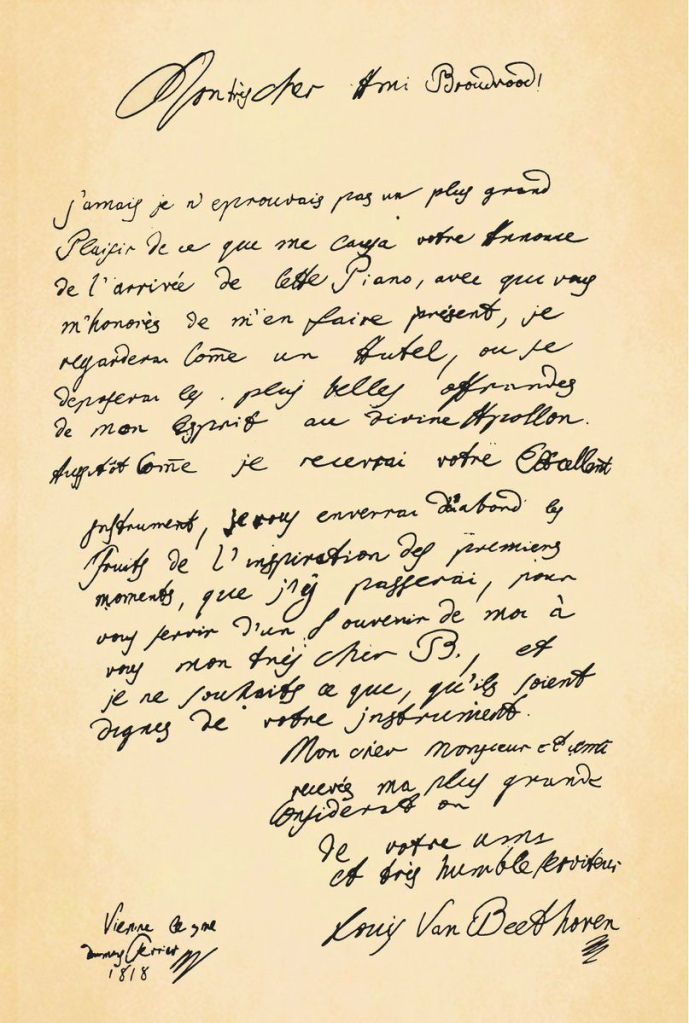 Mon très cher Ami Broudvood!
j'amais je n'eprouvais pas un plus grand
Plaisir de ce que me causa votre Annonce
de l'arrivée de Cette Piano, avec que vous
m'honorès de m'en faire présent, je
regarderai Come un Autel, ou je
deposerai les plus belles offrandes
de mon Esprit au divine Apollon.
Aussitôt Come je recevrai votre Excellent
jnstrument, je vous enverrai d'abord les
Fruits de l'inspiration des premiers
moments, que j'y passerai, pour
vous servir d'un Souvenir de moi à
vous mon très cher B., et
je ne souhaits ce que, qu'ils soient
dignes de votre jnstrument.
Mon cher Monsieur et ami
recevés ma plus grande
Consideration
de votre ami
et très humble serviteur
Louis Van Beethoven
Vienne le 3me
du mois Fevrier
1818